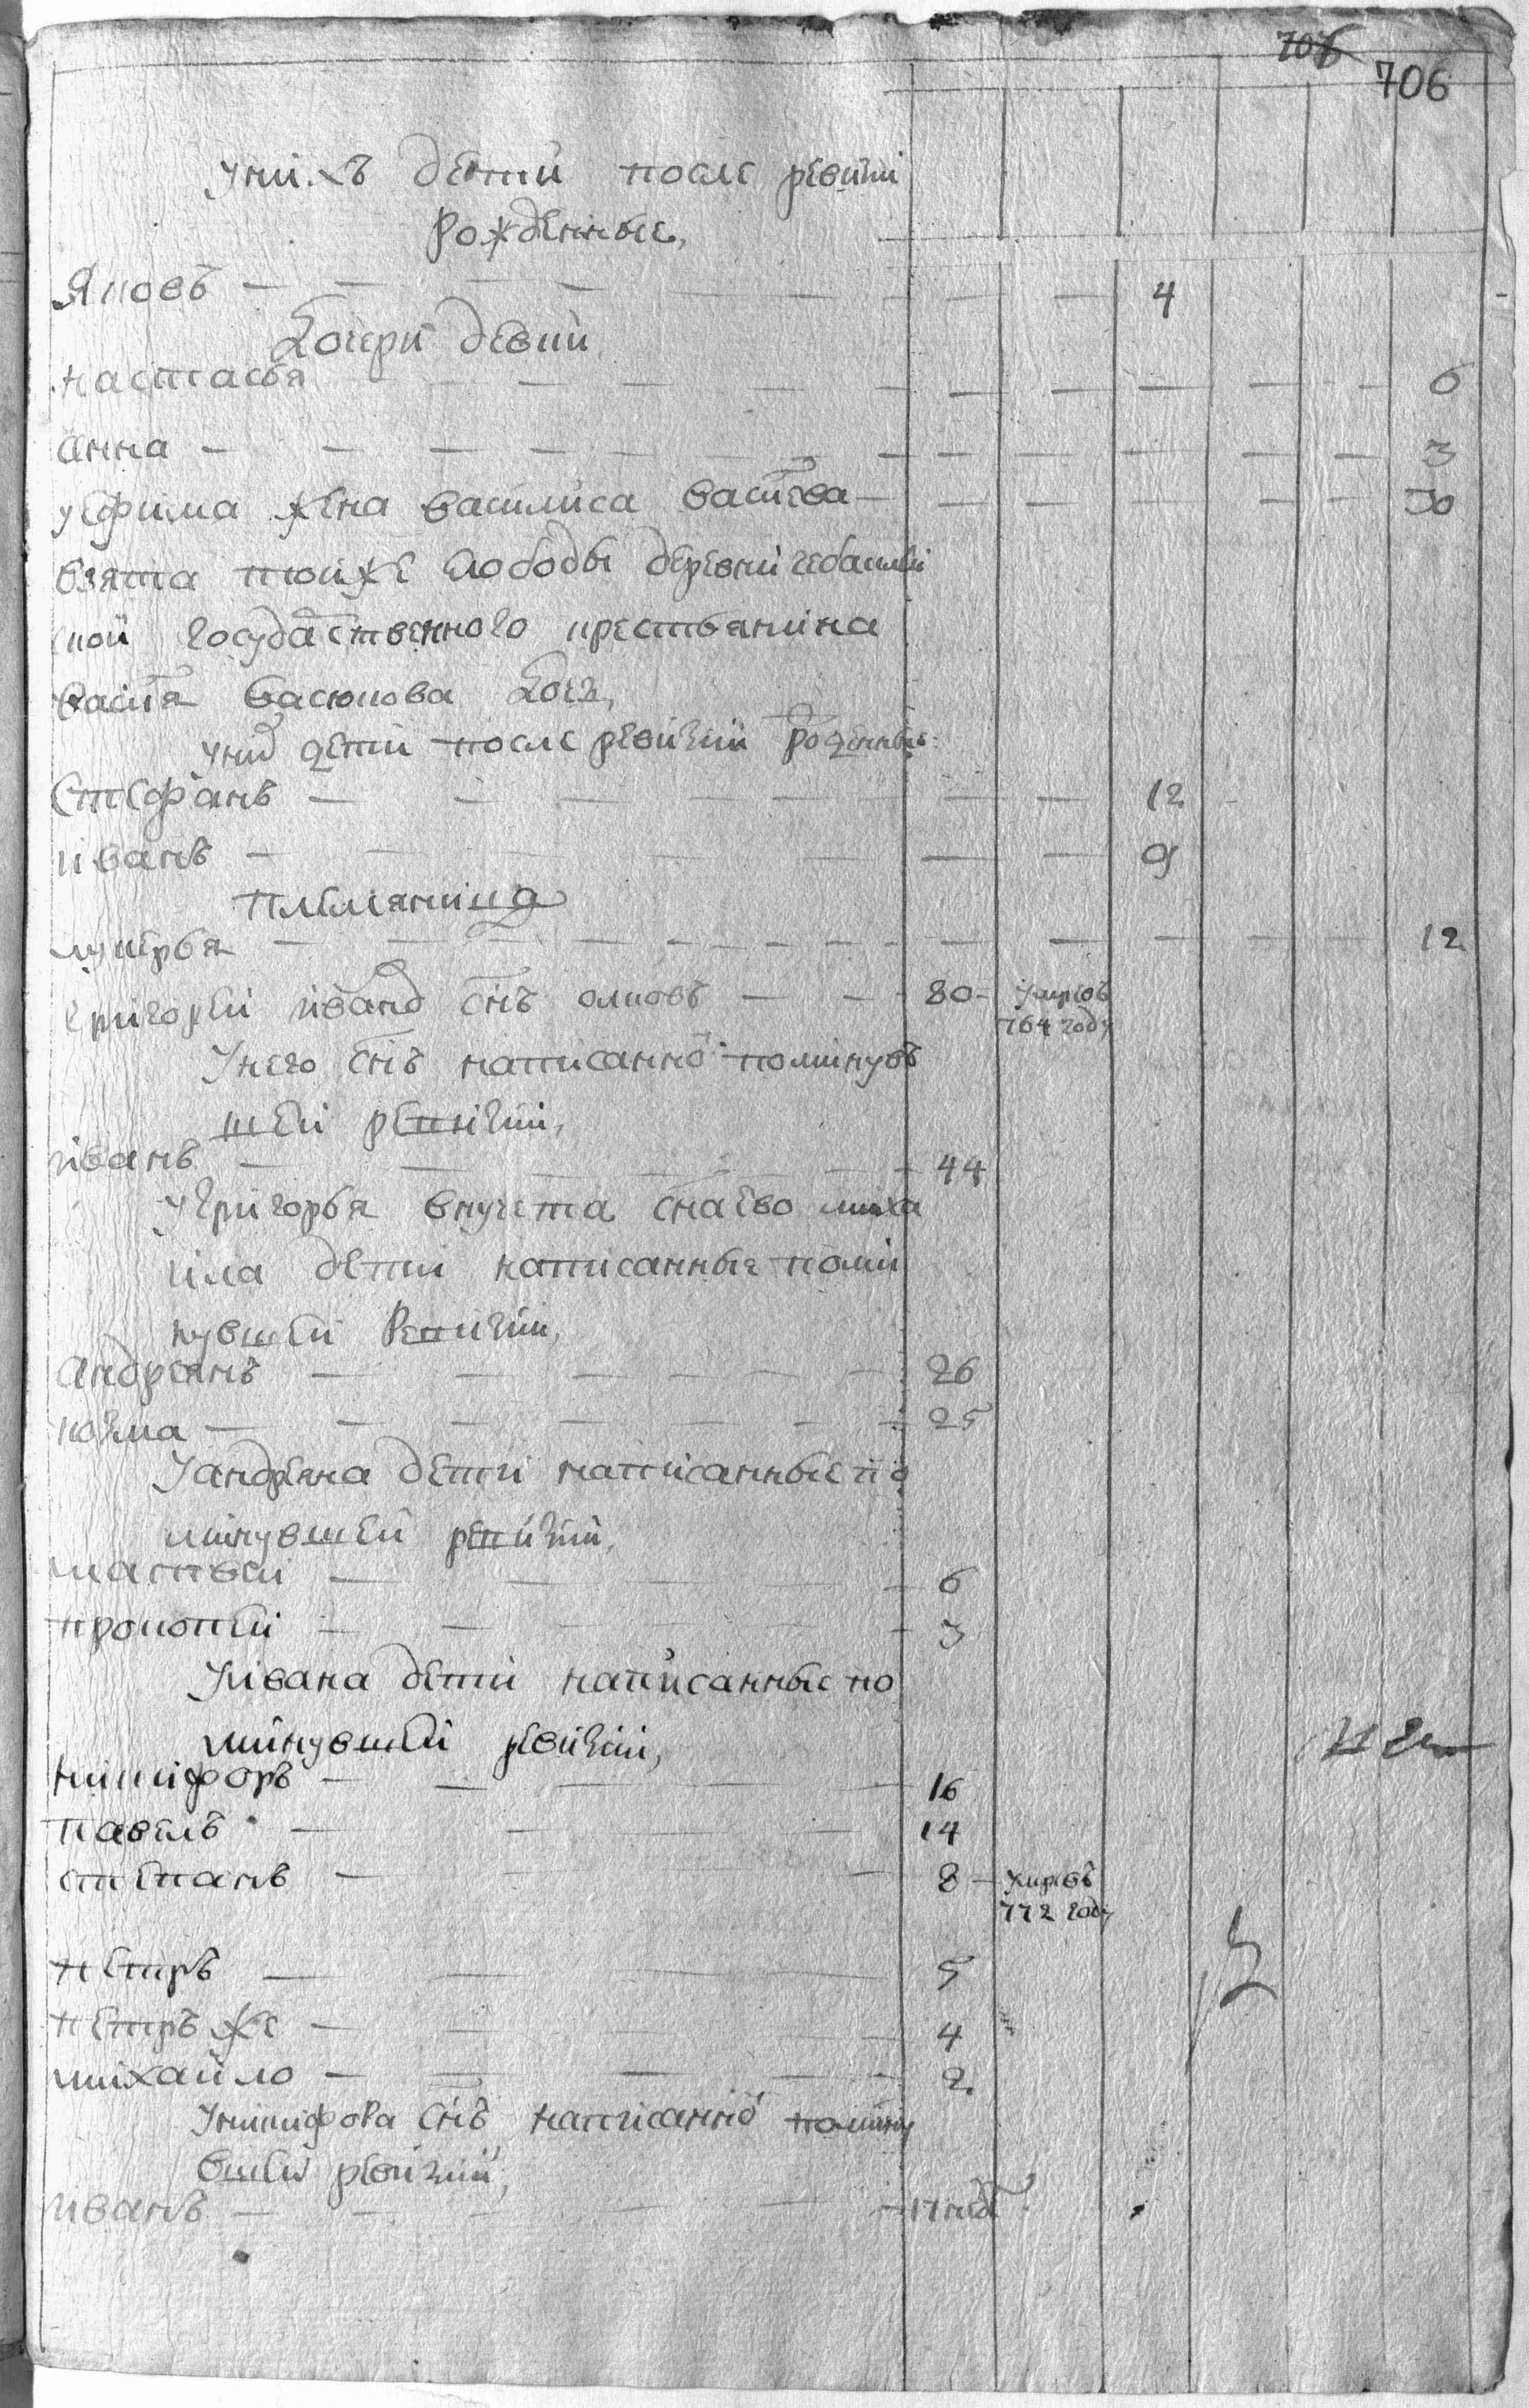 706
706
у них детей после ревизии
рожденные,
Яковъ — 4
Дочери девки
настасья — 6
анна — 3
уефима жена василиса васильева — 30
взята тоейже слободы деревни
ской государственного крестьянина
василья васюкова дочь,
у них дети после ревизии рожденные:
Стефанъ — 12
иванъ — 9
племяница
лукерья — 12
григорей иванов снъ — 80 — умре въ
764 году
У него снъ написанной по минув
шей ревизии,
иванъ — 44
У григорья внучета сна ево миха
ила дети написанные по мин
увшей Ревизии,
андреянъ — 26
козма — 25
У андреяна дети написанные по
минувшей ревизии,
матвей — 6
прокопей — 3
У ивана дети написанные по
минувшей ревизии,
никифоръ — 16
павелъ — 14
степанъ — 8 — умре въ
772 году
петръ — 5
петръ же — 4
михайло — 2
У никифора снъ написанной по мину
вшей ревизии,
иванъ — 17 нед